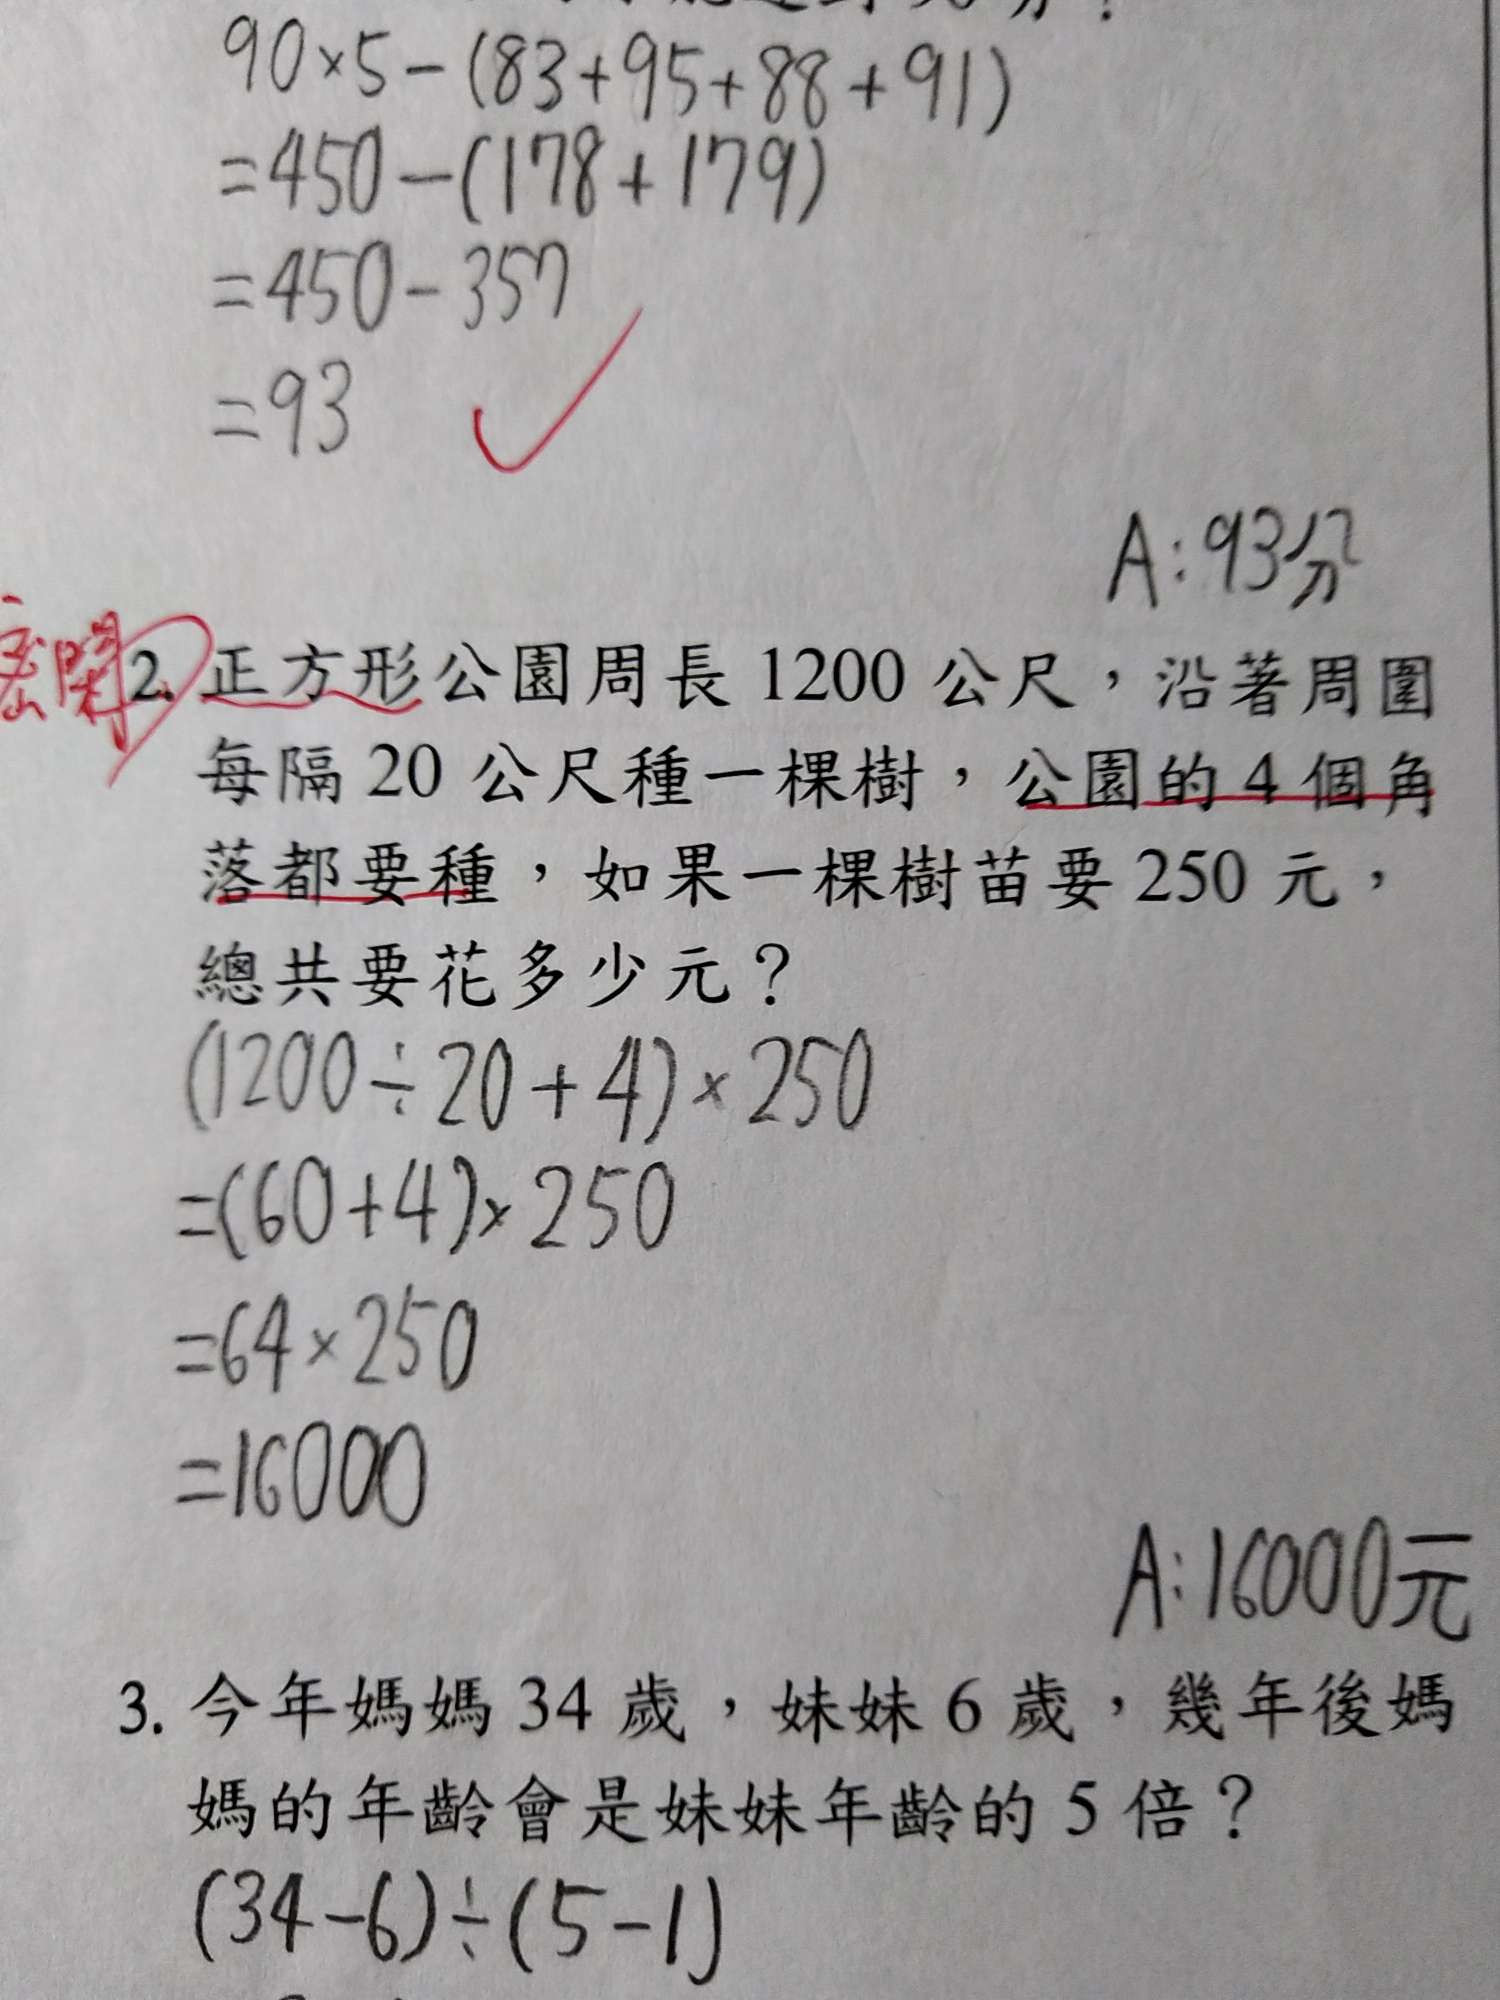 90×5-(83+95+88+91)
=450-(178+179)
=450-357
=93
A:93分
2. 正方形公園周長 1200 公尺，沿著周圍
每隔 20 公尺種一棵樹，公園的 4 個角
落都要種，如果一棵樹苗要 250 元，
總共要花多少元？
(1200÷20+4)×250
=(60+4)×250
=64×250
=16000
A:16000元
3. 今年媽媽 34 歲，妹妹 6 歲，幾年後媽
媽的年齡會是妹妹年齡的 5 倍？
(34-6)÷(5-1)